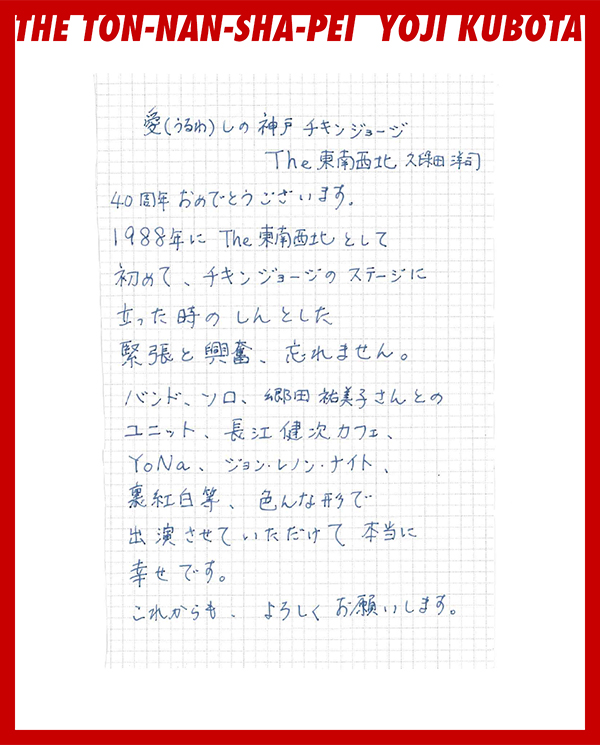 THE TON-NAN-SHA-PEI YOJI KUBOTA
愛(うるわ)しの神戸チキンジョージ
The 東南西北 久保田洋司
40周年おめでとうございます。
1988年に The 東南西北として
初めて、チキンジョージのステージに
立った時のしんとした
緊張と興奮、忘れません。
バンド、ソロ、郷田祐美子さんとの
ユニット、長江健次カフェ、
YoNa、ジョン・レノン・ナイト、
裏紅白等、色んな形で
出演させていただけて本当に
幸せです。
これからも、よろしくお願いします。